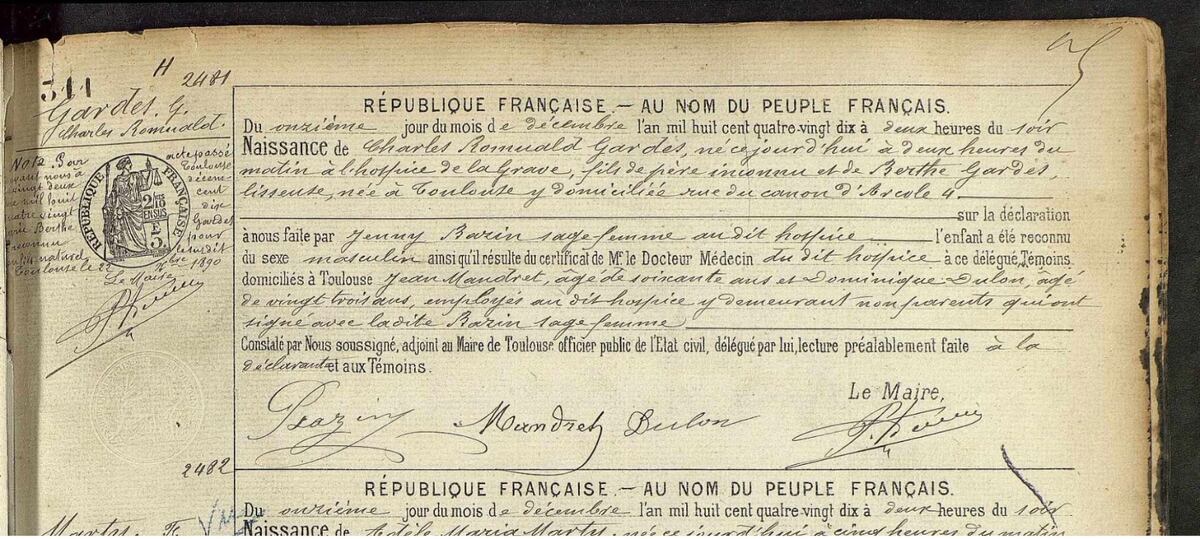 511
H 2481
Gardes. G.
Charles Romuald.
No 12 Par acte passé
devant nous à Toulouse
vingt deux décem-
mil huit cent
quatre vingt dix
Berthe Gardes
reconnu pour
naturel ledit
Toulouse le 22 Xbre 1890
Le Maire
RÉPUBLIQUE FRANÇAISE
2/10 EN SUS
RÉPUBLIQUE FRANÇAISE. — AU NOM DU PEUPLE FRANÇAIS.
Du onzième jour du mois de décembre l'an mil huit cent quatre-vingt dix à deux heures du soir
Naissance de Charles Romuald Gardes, né cejourd'hui à deux heures du
matin à l'hospice de la Grave, fils de père inconnu et de Berthe Gardes,
lisseuse, née à Toulouse y domiciliée rue du canon d'Arcole 4
sur la déclaration
à nous faite par Jenny Bazin sage femme au dit hospice l'enfant a été reconnu
du sexe masculin ainsi qu'il résulte du certificat de Mr le Docteur Médecin du dit hospice à ce délégué, Témoins
domiciliés à Toulouse Jean Mandret, âgé de soixante ans et Dominique Dulon, âgé
de vingt trois ans, employés au dit hospice y demeurant non parents qui ont
signé avec ladite Bazin sage femme
Constaté par Nous soussigné, adjoint au Maire de Toulouse officier public de l'Etat civil, délégué par lui, lecture préalablement faite à la
déclarante et aux Témoins.
Le Maire,
Bazin Mandret Dulon
2482
RÉPUBLIQUE FRANÇAISE. — AU NOM DU PEUPLE FRANÇAIS.
Du onzième jour du mois de décembre l'an mil huit cent quatre-vingt dix à deux heures du soir
Marty.
Naissance de Adèle Maria Marty, née cejourd'hui à cinq heures du matin